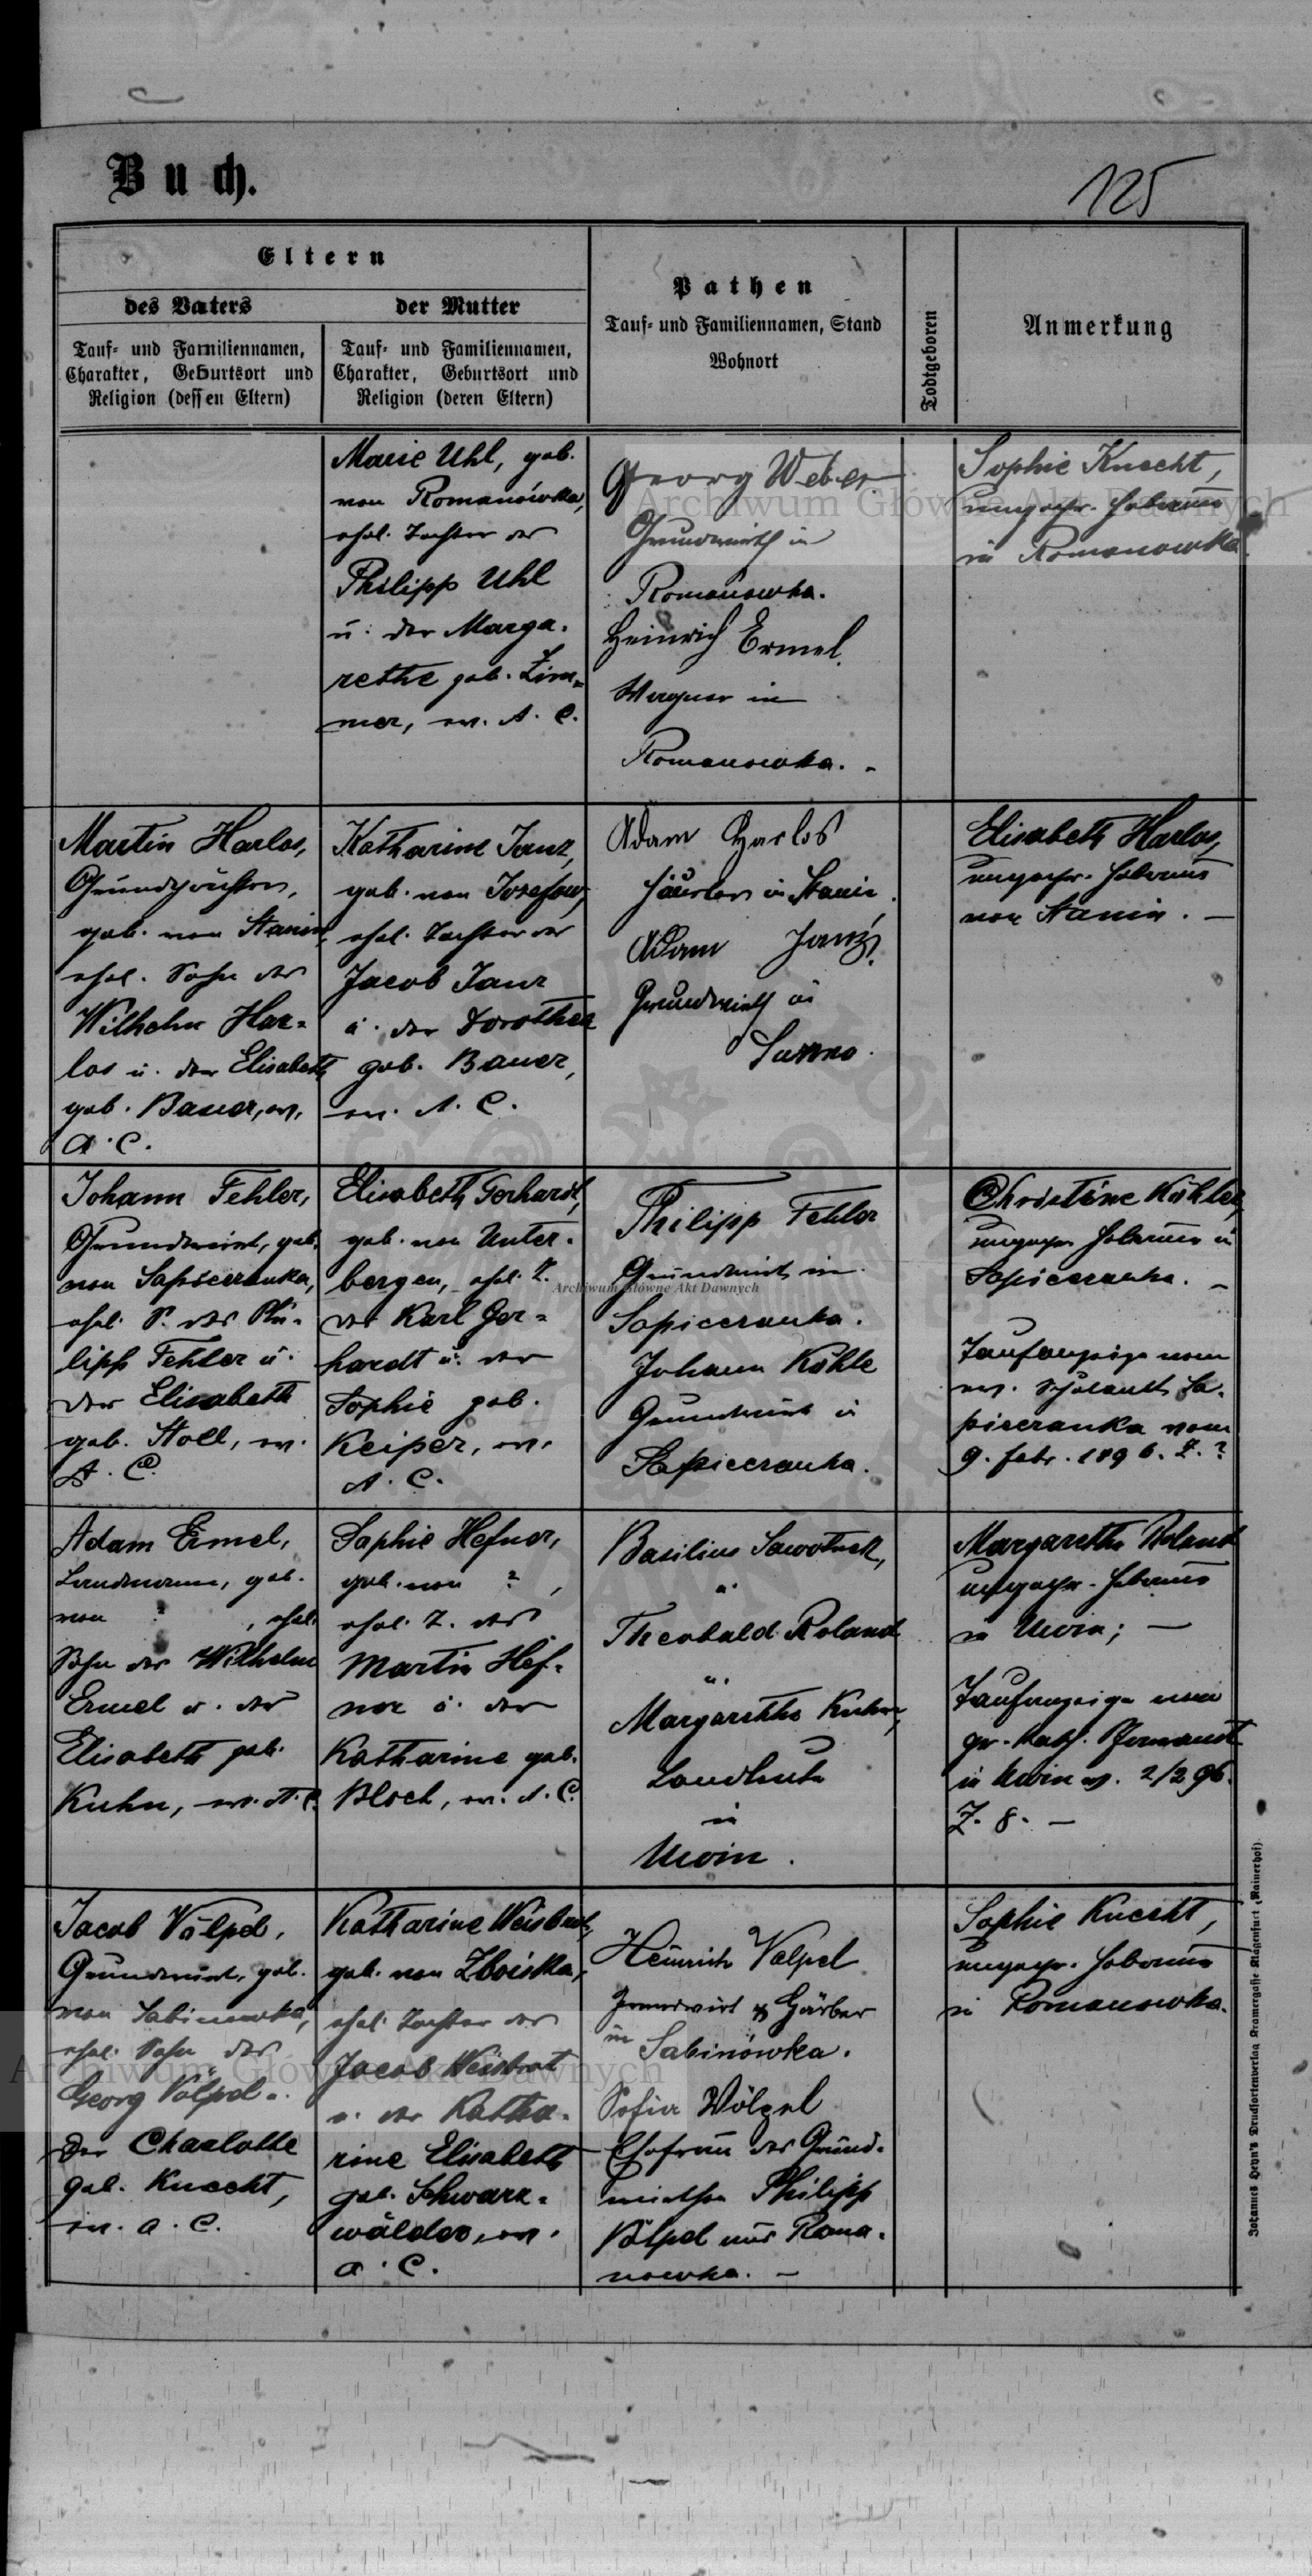 Buch.
125
Eltern
des Vaters
der Mutter
Tauf- und Familiennamen,
Charakter, Geburtsort und
Religion (dessen Eltern)
Tauf- und Familiennamen,
Charakter, Geburtsort und
Religion (deren Eltern)
Pathen
Tauf- und Familiennamen, Stand
Wohnort
Todtgeboren
Anmerkung
Marie Uhl, geb.
von Romanówka,
ehel. Tochter des
Philipp Uhl
u. der Marga-
rethe geb. Zim-
mer, ev. A. C.
Georg Weber
Grundwirth in
Romanówka.
Heinrich Ermel
Wagner in
Romanowka.
Sophie Knecht,
ungepr. Hebamme
in Romanowka.
Martin Harlos,
geb. von Stanin,
ehel. Sohn des
Wilhelm Har-
los u. der Elisabeth
geb. Bauer, ev.
A. C.
Katharine Janz,
geb. von Josefow,
ehel. Tochter des
Jacob Janz
u. der Dorothea
geb. Bauer,
ev. A. C.
Adam Harlos
Häusler in Stanin.
Adam Janz,
Grundwirth in
Elisabeth Harlos,
ungepr. Hebamme
von Stanin. —
Johann Fehler,
Grundwirt, geb.
von Sapieżanka,
ehel. S. des Phi-
lipp Fehler u.
der Elisabeth
geb. Stoll, ev.
A. C.
Elisabeth Gerhardt,
geb. von Unter-
bergen, ehel. T.
des Karl Ger-
hardt u. der
Sophie geb.
Keiper, ev.
A. C.
Philipp Fehler
Grundwirt in
Sapiezanka.
Johann Köhle
Grundwirt in
Sapiezanka.
Christine Köhler,
ungepr. Hebamme in
Sapiezanka. —
Taufanzeige vom
ev. Schulamt Sa-
piezanka vom
9. Febr. 1896. Z. ?
Adam Ermel,
Landmann, geb.
von ? , ehel.
Sohn des Wilhelm
Ermel u. der
Elisabeth geb.
Kuhn, ev. A. C.
Sophie Hefner,
geb. von ? ,
ehel. T. des
Martin Hef-
ner u. der
Katharine geb.
Bloch, ev. A. C.
Basilius
u.
Theobald Roland
u.
Margarethe Kuhn,
Landleute
in
Uwin.
Margarethe Roland
ungepr. Hebamme
in Uwin; —
Taufanzeige vom
gr.-kath. Pfarramt
in Uwin v. 2/2 96.
Z. 8. —
Jacob Völpel,
Grundwirt, geb.
von Sabinowka,
ehel. Sohn des
Georg Völpel u.
der Charlotte
geb. Knecht,
ev. A. C.
Katharine Weisbrot,
geb. von Zboiska,
ehel. Tochter des
Jacob Weisbrot
u. der Katha-
rine Elisabeth
geb. Schwarz-
wälder, ev.
A. C.
Heinrich Volpel
Grundwirt & Gärber
in Sabinówka.
Sofia Völpel
Ehefrau des Grund-
wirthen Philipp
Völpel aus Roma-
nowka. —
Sophie Knecht,
ungepr. Hebamme
in Romanowka.
Johannes Heyn's Drucksortenverlag Kramergasse Klagenfurt (Rainerhof)
Archiwum Główne Akt Dawnych
Archiwum Główne Akt Dawnych
Archiwum Główne Akt Dawnych